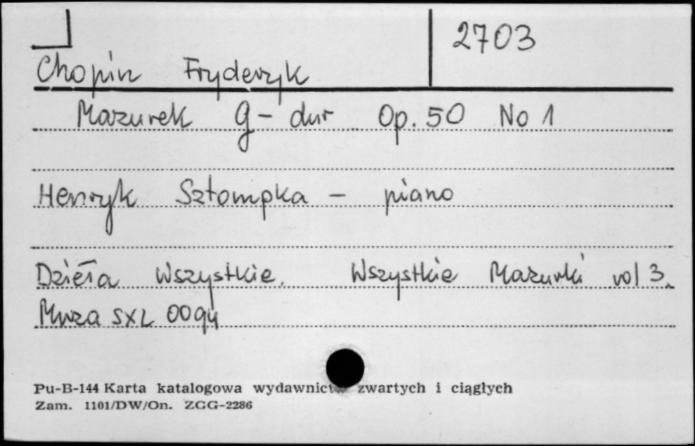 2703
Chopin Fryderyk
Mazurek g-dur Op. 50 No 1
Henryk Sztompka - piano
Dzieła Wszystkie. Wszystkie Mazurki vol 3.
Muza SXL 0094
Pu-B-144 Karta katalogowa wydawnictw zwartych i ciągłych
Zam. 1101/DW/On. ZGG-2286